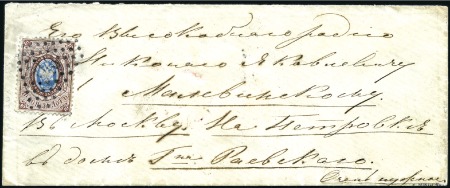 Его Высокоблагородию
Николаю Яковлевичу
Малевинскому.
Въ Москву. На Петровкѣ
въ домѣ Г-на Раевскаго.
Очень нужное